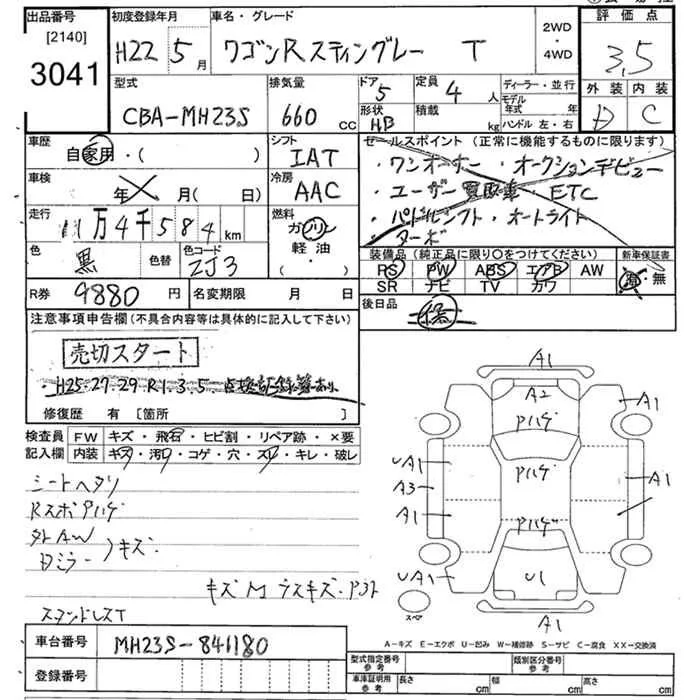 出品番号 [2140] 3041
初度登録年月 H22 5月
車名・グレード ワゴンRスティングレー T
2WD・4WD
評価点 3.5
外装 内装
D C
型式 CBA-MH23S
排気量 660 cc
ドア 5
形状 HB
定員 4人
積載 kg
ディーラー・並行
モデル年式 年
ハンドル 左・右
車歴 自家用・( )
シフト IAT
セールスポイント(正常に機能するものに限ります)
・ワンオーナー ・オークションデビュー
・ユーザー買取車・ETC
・パドルシフト・オートライト
・ターボ
車検 年 月( 日)
冷房 AAC
走行 11万4千584 km
燃料 ガソリン・軽油・( )
色 黒 色替
色コード ZJ3
装備品(純正品に限り○をつけてください)
新車保証書
RS PW ABS エアB AW
SR ナビ TV カワ
有・無
R券 9880円
名変期限 月 日
後日品
注意事項申告欄(不具合内容等は具体的に記入して下さい)
売切スタート
・H25.27.29 R1.3.5 点検記録簿あり
修復歴 有[箇所 ]
検査員記入欄
FW キズ・飛石・ヒビ割・リペア跡・×要
内装 キズ・汚レ・コゲ・穴・スレ・キレ・破レ
シートヘタリ
RスポPハゲ
外AW
Dミラー キズ
キズM ラスキズ・Pアト
スタンドレスT
A1
A2
Pハゲ
A1
Pハゲ
UA1
A3
A1
A1
Pハゲ
UA1
U1
A1
スペア
A1
A-キズ E-エクボ U-凹み W-補修跡 S-サビ C-腐食 XX-交換済
車台番号 MH23S-841180
登録番号
型式指定番号 参考
類別区分番号 参考
車庫証明用 参考
長さ cm
幅 cm
高さ cm